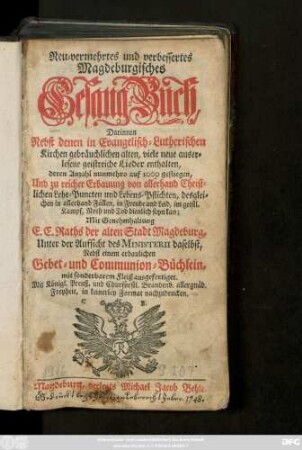 Neu-vermehrtes und verbessertes
Magdeburgisches
Gesang-Buch,
Darinnen
Nebst denen in Evangelisch-Lutherischen
Kirchen gebräuchlichen alten, viele neue auser-
lesene geistreiche Lieder enthalten,
deren Anzahl nunmehro auf 1069 gestiegen,
Und zu reicher Erbauung von allerhand Christ-
lichen Lehr-Puncten und Lebens-Pflichten, desglei-
chen in allerhand Fällen, in Freude und Leid, im geistl.
Kampf, Noth und Tod dienlich seyn kan;
Mit Genehmhaltung
E. E. Raths der alten Stadt Magdeburg,
Unter der Aufsicht des MINISTERII daselbst,
Nebst einem erbaulichen
Gebet- und Communion-Büchlein,
mit sonderbarem Fleiß ausgefertiget.
Mit Königl. Preuß. und Churfürstl. Brandenb. allergnäd.
Freyheit, in keinerley Format nachzudrucken.
Magdeburg, verlegts Michael Jacob Behle.
1748.